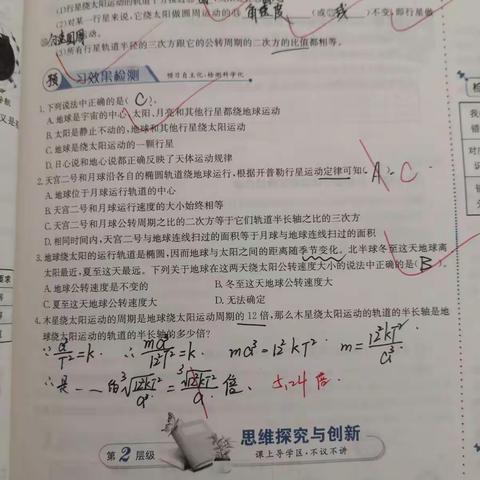 (2)对某一行星来说,它绕太阳做圆周运动的 角速度 (或 线 )不变,即行星做
匀速圆周 运动。
(3)所有行星轨道半径的三次方跟它的公转周期的二次方的比值都相等。
预 习效果检测 预习自主化·检测科学化
1.下列说法中正确的是( C )。
A.地球是宇宙的中心,太阳、月亮和其他行星都绕地球运动
B.太阳是静止不动的,地球和其他行星绕太阳运动
C.地球是绕太阳运动的一颗行星
D.日心说和地心说都正确反映了天体运动规律
2.天宫二号和月球沿各自的椭圆轨道绕地球运行,根据开普勒行星运动定律可知 A C
A.地球位于月球运行轨道的中心
B.天宫二号和月球运行速度的大小始终相等
C.天宫二号和月球公转周期之比的二次方等于它们轨道半长轴之比的三次方
D.相同时间内,天宫二号与地球连线扫过的面积等于月球与地球连线扫过的面积
3.地球绕太阳的运行轨道是椭圆,因而地球与太阳之间的距离随季节变化。北半球冬至这天地球离
太阳最近,夏至这天最远。下列关于地球在这两天绕太阳公转速度大小的说法中正确的是( B )。
A.地球公转速度是不变的 B.冬至这天地球公转速度大
C.夏至这天地球公转速度大 D.无法确定
4.木星绕太阳运动的周期是地球绕太阳运动周期的12倍,那么木星绕太阳运动的轨道的半长轴是地
球绕太阳运动的轨道的半长轴的多少倍?
∵ a³/T²=k. ∴ ma³/12²T²=k. ma³=12²kT² m=12²kT²/a³
倍、 5.24倍.
第2层级 思维探究与创新
课上导学区,不议不讲